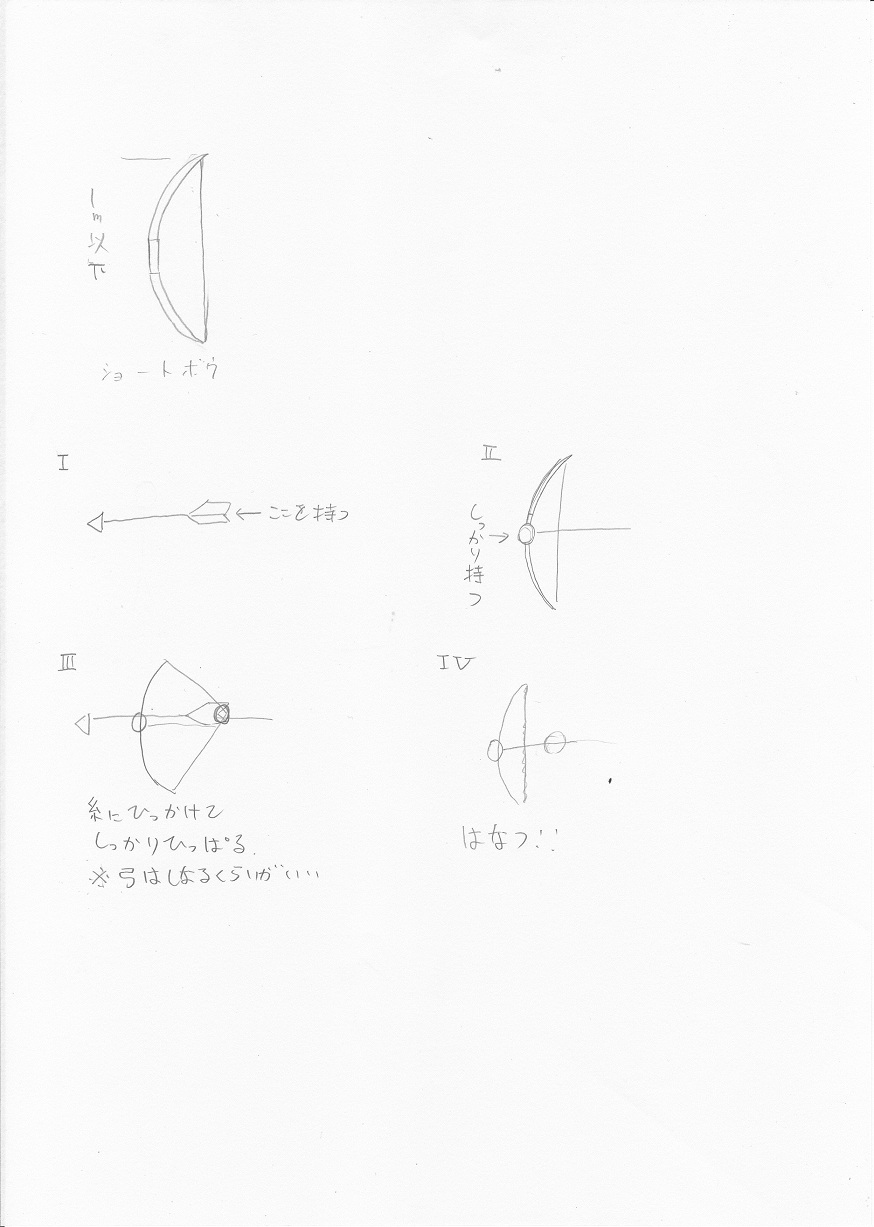 1m以下
ショートボウ
I
ここを持つ
II
しっかり持つ
III
糸にひっかけて
しっかりひっぱる.
※弓はしなるくらいがいい
IV
はなつ!!